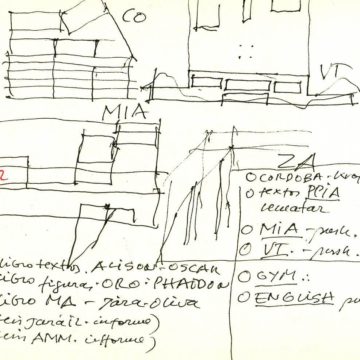 CO
VT
MIA
2
ZA
O CORDOBA -
O textos PPIA
rematar
O MIA - push.
O VT. - push.
O GYM.:
O ENGLISH
libro textos. ALISON - OSCAR
libro figuras - ORO: PHAIDON
libro MA - jara - oliva
informe)
AMM. informe)